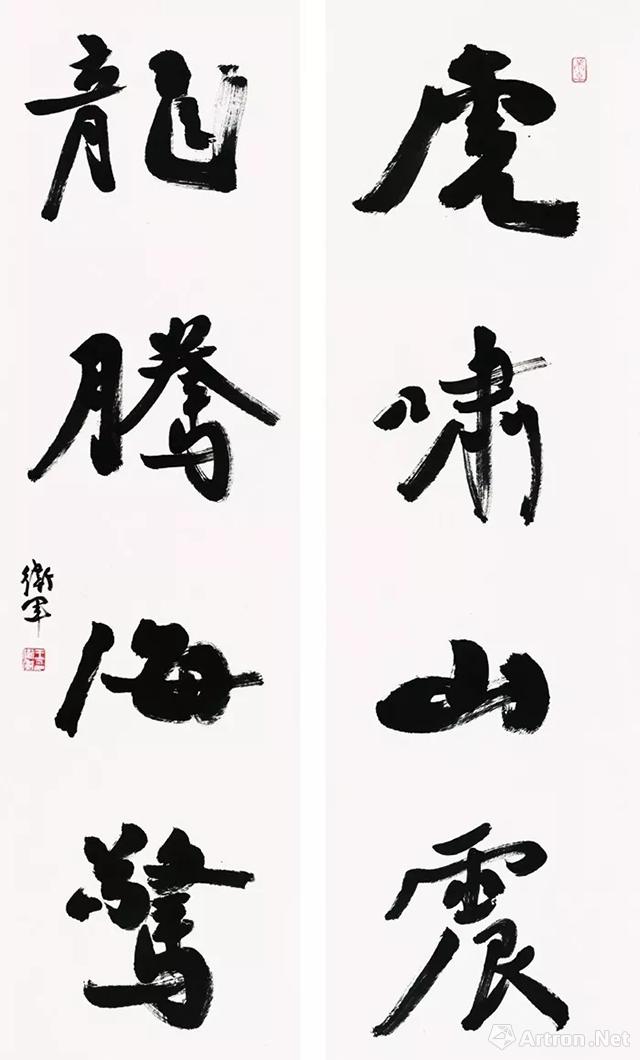 虎啸山震
龍騰海驚
衛軍
Artron.Net